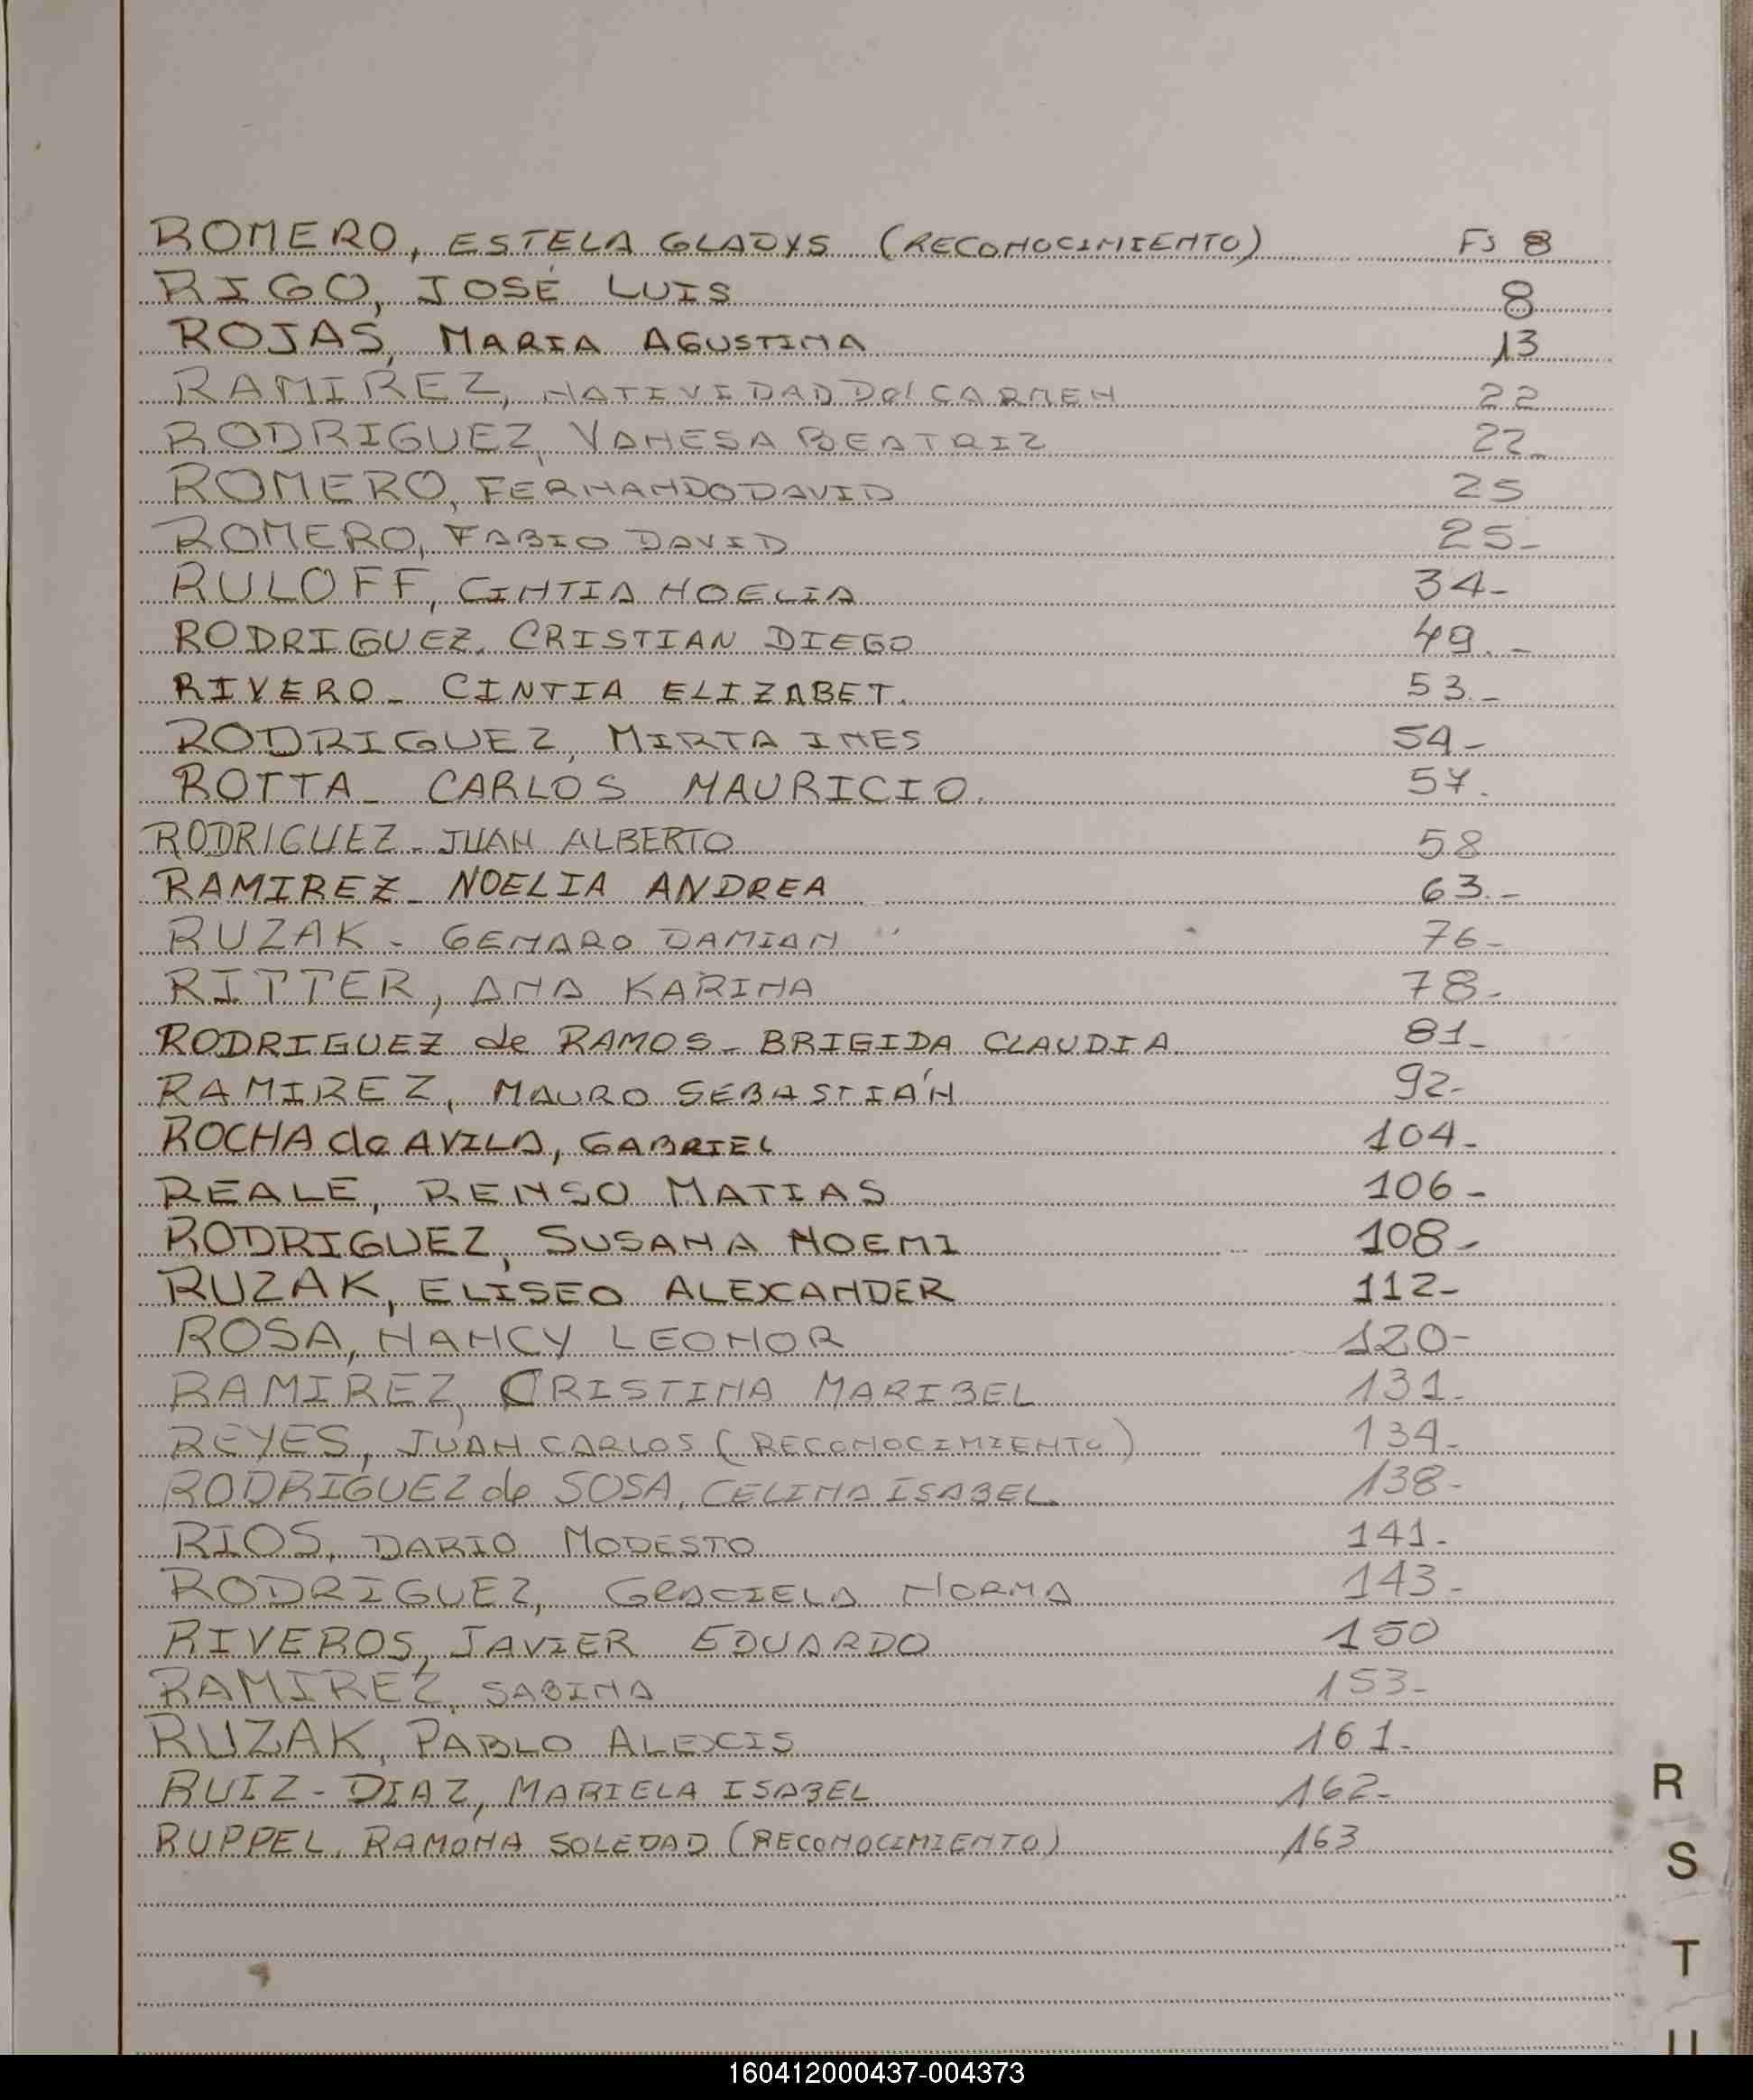 ROMERO, ESTELA GLADYS (RECONOCIMIENTO) Fs 8
RIGO, JOSÉ LUIS 8
ROJAS, MARIA AGUSTINA 13
RAMIREZ, NATIVIDAD Del CARMEN 22
RODRIGUEZ, VANESA BEATRIZ 22-
ROMERO, FERNANDO DAVID 25
ROMERO, FABIO DAVID 25-
RULOFF, CINTIA NOELIA 34-
RODRIGUEZ. CRISTIAN DIEGO 49.-
RIVERO- CINTIA ELIZABET. 53.-
RODRIGUEZ, MIRTA INES 54-
ROTTA- CARLOS MAURICIO. 57.
RODRIGUEZ- JUAN ALBERTO 58
RAMIREZ- NOELIA ANDREA 63.-
RUZAK- GENARO DAMIAN 76-
RITTER, ANA KARINA 78-
RODRIGUEZ de RAMOS- BRIGIDA CLAUDIA 81-
RAMIREZ, MAURO SEBASTIÁN 92-
ROCHA de AVILA, GABRIEL 104-
REALE, RENSO MATIAS 106-
RODRIGUEZ, SUSANA NOEMI 108-
RUZAK, ELISEO ALEXANDER 112-
ROSA, NANCY LEONOR 120-
RAMIREZ, CRISTINA MARIBEL 131-
REYES, JUAN CARLOS (RECONOCIMIENTO) 134-
RODRIGUEZ de SOSA, CELINA ISABEL 138-
RIOS, DARIO MODESTO 141-
RODRIGUEZ, GRACIELA NORMA 143-
RIVEROS, JAVIER EDUARDO 150
RAMIREZ, SABINA 153-
RUZAK, PABLO ALEXIS 161-
RUIZ-DIAZ, MARIELA ISABEL 162-
RUPPEL, RAMONA SOLEDAD (RECONOCIMIENTO) 163
R
S
T
U
160412000437-004373